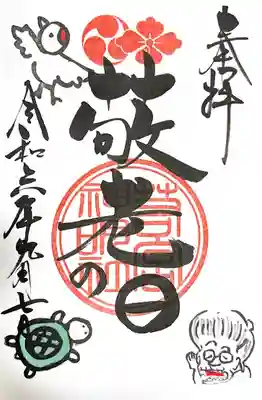 奉拝
敬老の日
令和六年九月七日